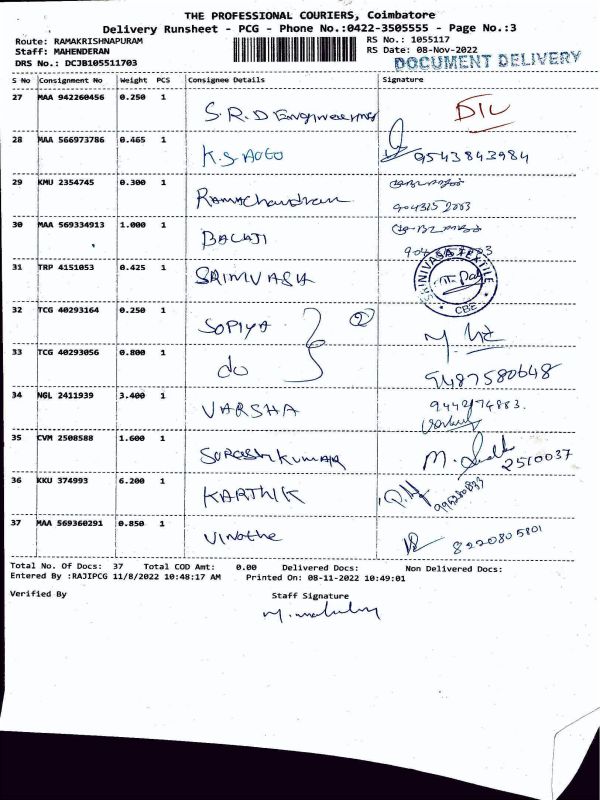 THE PROFESSIONAL COURIERS, Coimbatore
Delivery Runsheet - PCG - Phone No.:0422-3505555 - Page No.:3
Route: RAMAKRISHNAPURAM
RS No.: 1055117
Staff: MAHENDERAN
RS Date: 08-Nov-2022
DOCUMENT DELIVERY
DRS No.: DCJB105511703
S No Consignment No Weight PCS Consignee Details Signature
27 MAA 942260456 0.250 1
S.R.D Engineering
28 MAA 566973786 0.465 1
K.S AUTO 9543843984
29 KMU 2354745 0.300 1
Ramachandran
30 MAA 569334913 1.000 1
BALAJI
31 TRP 4151053 0.425 1
SRINIVASA
SRINIVASA TEXTILE
CBE
32 TCG 40293164 0.250 1
SOPIYA 2
33 TCG 40293056 0.800 1
do 9487580648
34 NGL 2411939 3.400 1
VARSHA 9442174883.
35 CVM 2508588 1.600 1
SURESH KUMAR 2510037
36 KKU 374993 6.200 1
KARTHIK
37 MAA 569360291 0.850 1
Vinothe 8220805801
Total No. Of Docs: 37 Total COD Amt: 0.00 Delivered Docs: Non Delivered Docs:
Entered By :RAJIPCG 11/8/2022 10:48:17 AM Printed On: 08-11-2022 10:49:01
Verified By Staff Signature